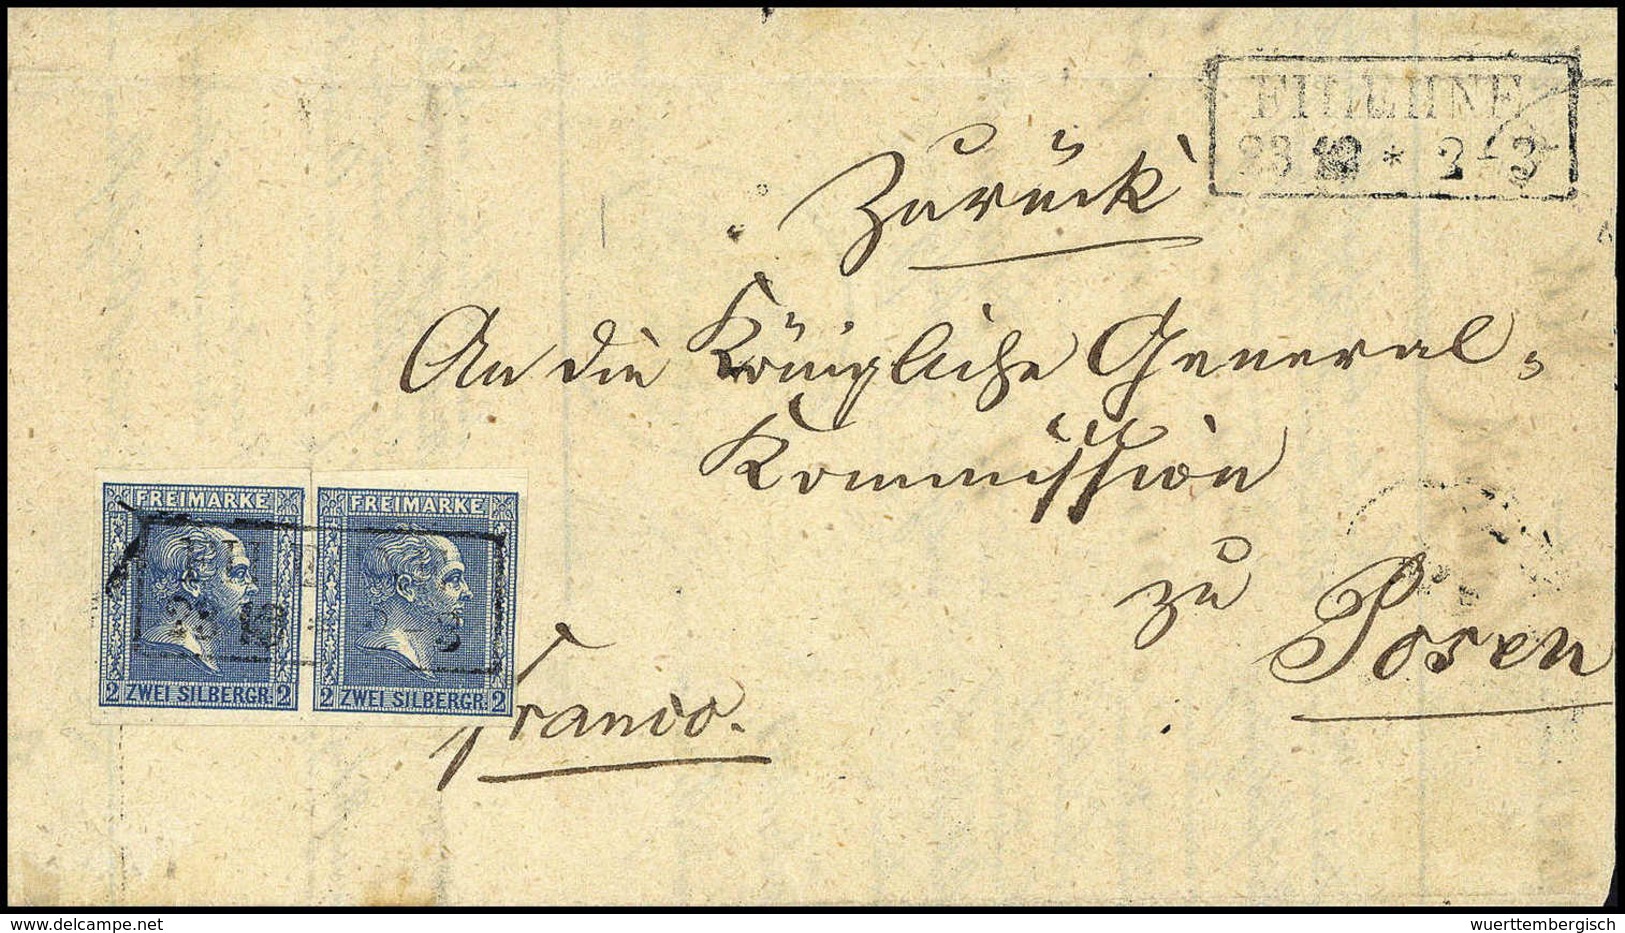 FILEHNE
23 12 * 2-3
Zurück
An die Königliche General-
Kommission
zu
Posen
Franco.
FREIMARKE
2 ZWEI SILBERGR. 2
FREIMARKE
2 ZWEI SILBERGR. 2
delcampe.net
wuerttembergisch